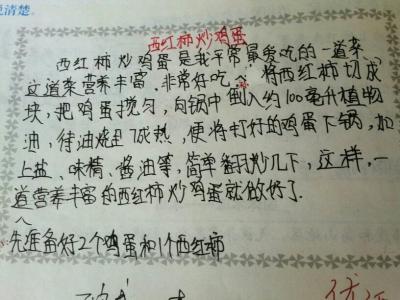 说清楚。
西红柿炒鸡蛋
西红柿炒鸡蛋是我平常最爱吃的一道菜,
这道菜营养丰富,非常好吃。^将西红柿切成
块,把鸡蛋搅匀,向锅中倒入约100毫升植物
油,待油烧至成热,便将打好的鸡蛋下锅,加
上盐、味精、酱油等,简单翻炒几下,这样,一
道营养丰富的西红柿炒鸡蛋就做好了.
^
先准备好2个鸡蛋和1个西红柿